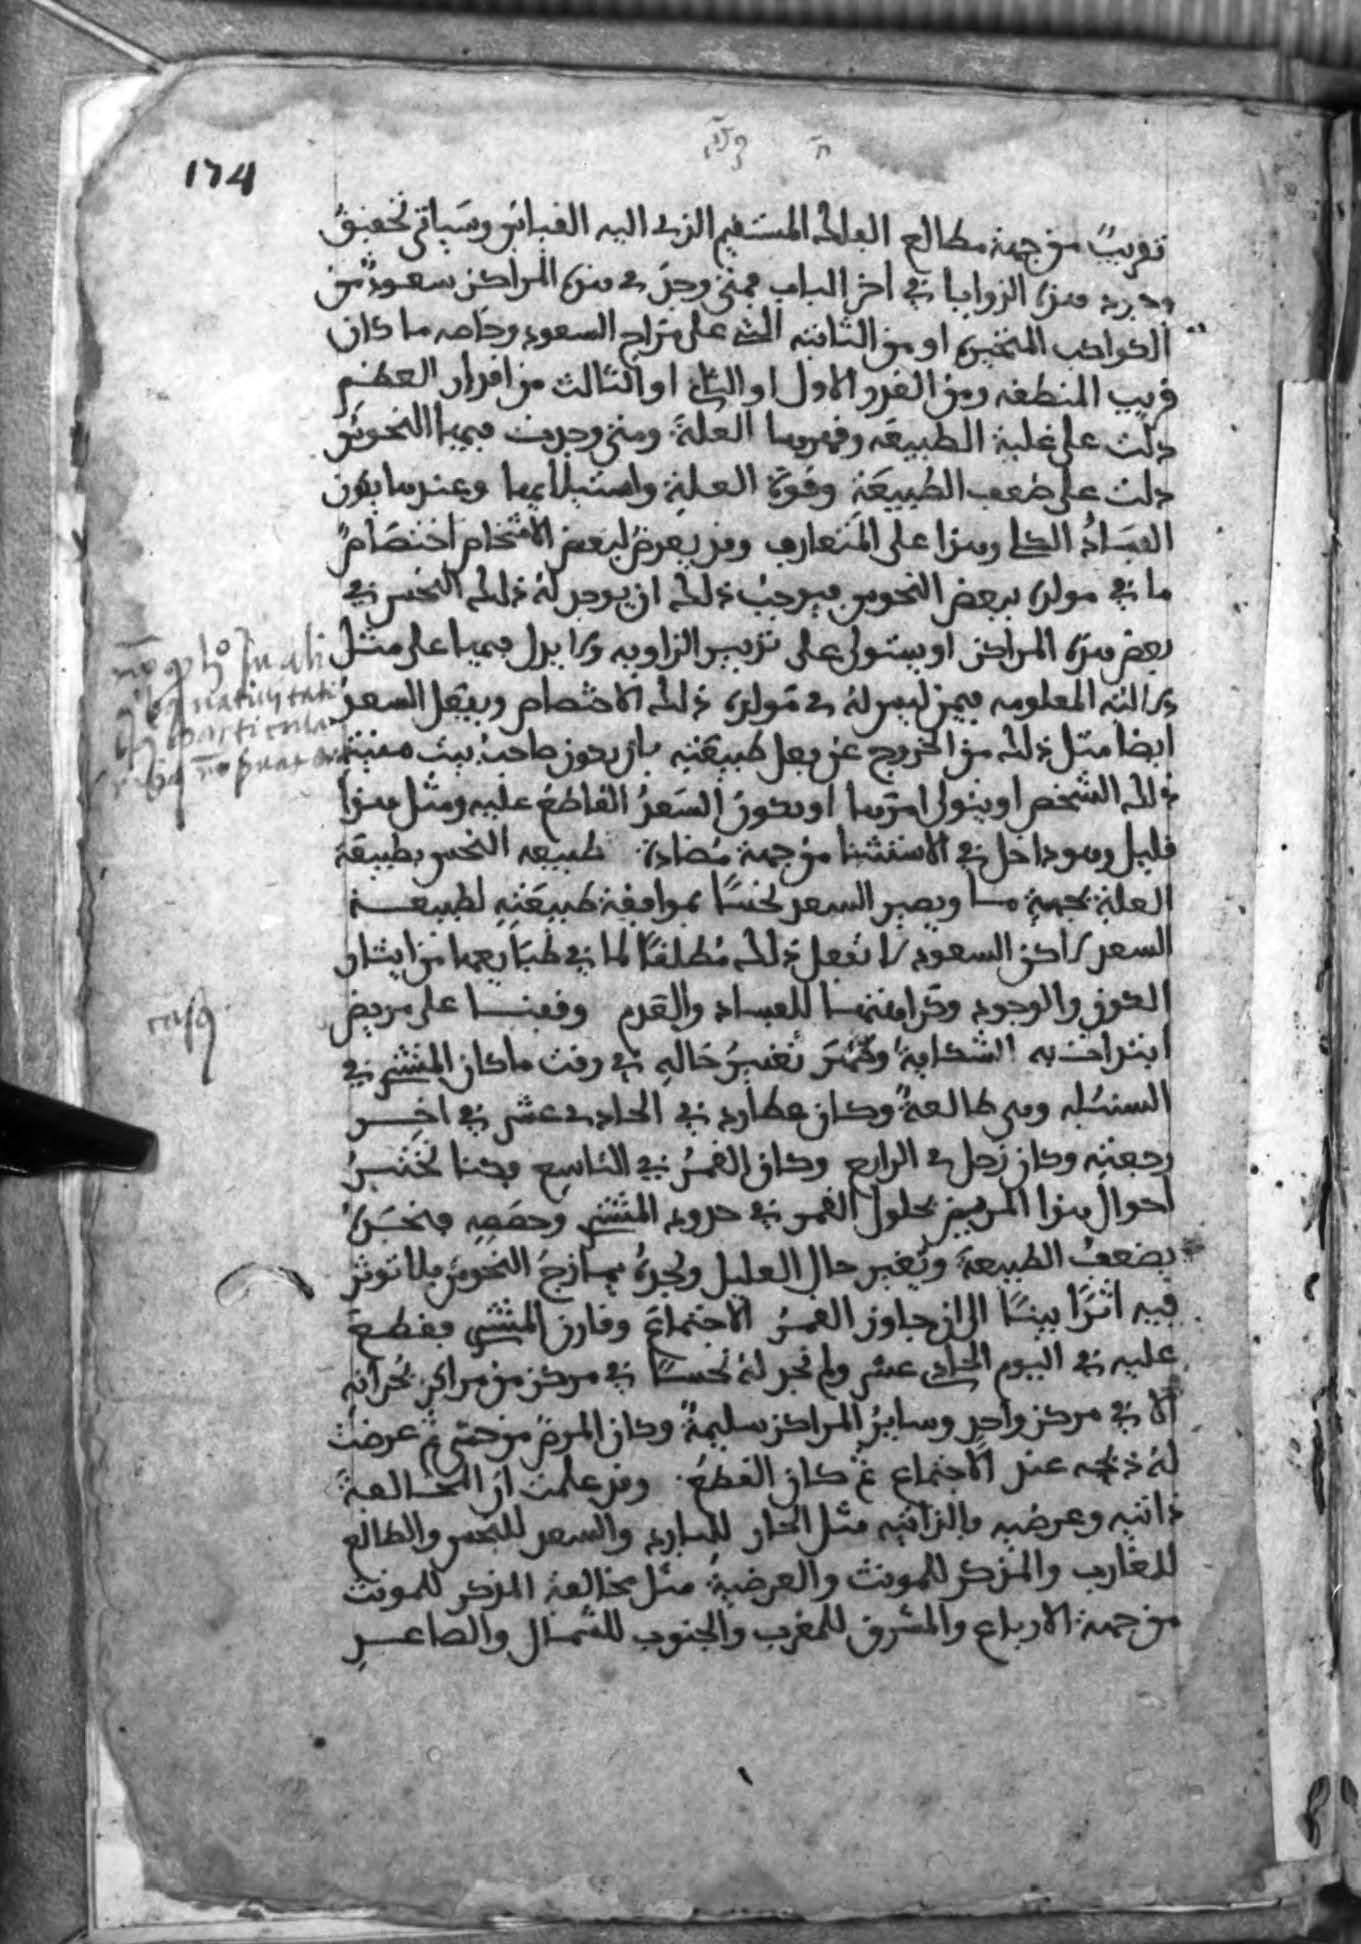 174
تقريبًا من جهة مطالع الفلك المستقيم الذى اليه القياس وسياتى تحقيق
وجود هذه الزوايا في اخر الباب فمتى وجد في هذه المراكز سعود من
الكواكب المتحيره او من الثابته التى على مزاج السعود وخاصه ما كان
قريب المنطقه ومن القدر الاول او الثانى او الثالث من اقدار العظم
دلت على غلبة الطبيعه وقهرها العلة ومتى وجدت فيها النحوس
دلت على ضعف الطبيعة وقوة العلة واستيلايها وعندها يكون
الفساد الكلى وهذا على المتعارف وقد يعرض لبعض الاشخاص اختصاص
ما في مولده ببعض النحوس فيوجب ذلك ان يوجد له ذلك النحس في
بعض هذه المراكز او يستولى على تدبير الزاويه ولا يدل فيها على مثل
دلالته المعلومه فيمن ليس له في مولده ذلك الاختصاص ويفعل السعد
ايضا مثل ذلك من الخروج عن فعل طبيعته بان يكون صاحب بيت منية
ذلك الشخص او يتولى امرها او يكون السعد القاطع عليه ومثل هذا
قليل وهو داخل في الاستثنا من جهة مضادة طبيعه النحس بطبيعة
العلة بجهة ما ويصير السعد نحسًا بموافقة طبيعته لطبيعة
السعد لاكن السعود لا تفعل ذلك مطلقًا لما في طبايعها من ايثار
الكون والوجود وكراهتها للفساد والعدم وقفنا على مريض
ابتدات به الشكاية وظهر تغيير حاله في وقت ما كان المشترى في
السنبله وهى طالعة وكان عطارد في الحادى عشر في اخر
رجعته وكان زحل في الرابع وكان القمر في التاسع وكنا نختبر
احوال هذا المريض بحلول القمر في حدود المشترى وحصصه فنجده
بضعف الطبيعة وتغير حال العليل ونجده يمازج النحوس فلا توثر
فيه اثرًا بينًا الى ان جاوز القمر الاجتماع وفارق المشترى فقطع
عليه في اليوم الحادى عشر ولم نجد له نحسًا في مركز من مراكز بحرانه
الا في مركز واحد وساير المراكز سليمة وكان المرض من حمى ثم عرضت
له ذبحه عند الاجتماع ثم كان القطع وقد علمت ان المخالفة
ذاتيه وعرضيه فالذاتيه مثل الحار للبارد والسعد للنحس والطالع
للغارب والمذكر للمونث والعرضية مثل مخالفة المذكر للمونث
من جهة الارباع والمشرق للمغرب والجنوب للشمال والصاعد
casus